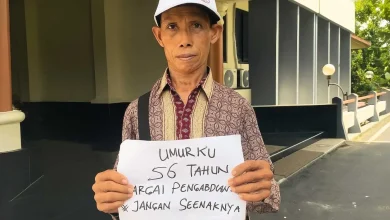 UMURKU
56 TAHUN
HARGAI PENGABDIAN
* JANGAN SEENAKNYA